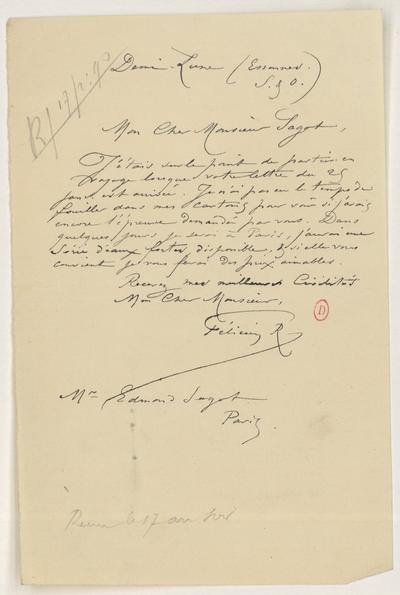 R/ 17/2/90
Demi-Lune (Essonnes.
S. & O.)
Mon Cher Monsieur Sagot,
J'étais sur le point de partir en
voyage lorsque votre lettre du 25
janv. est arrivée. Je n'ai pas eu le temps de
fouiller dans mes cartons, pour voir si j'avais
encore l'épreuve demandée par vous. Dans
quelques jours je serai à Paris, j'aurai une
Série d'eaux fortes disponible, & si elle vous
convient je vous ferai des prix aimables.
Recevez mes meilleures Cordialités
Mon Cher Monsieur,
Félicien R
D
Mr Edmond Sagot
Paris
le 17